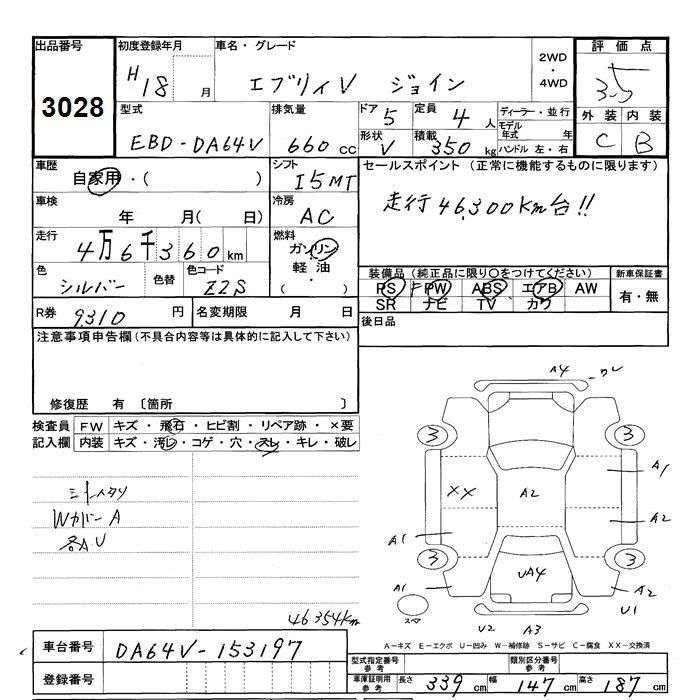 出品番号 初度登録年月 車名・グレード 評価点
3028
H18 月 エブリィV ジョイン 2WD・4WD 3.5
型式 排気量 ドア 定員 ディーラー・並行 外装 内装
EBD-DA64V 660cc 5 4人 モデル年式 年 C B
形状 積載
V 350kg ハンドル 左・右
車歴 シフト セールスポイント (正常に機能するものに限ります)
自家用・( ) I5MT
走行46,300Km台!!
車検 冷房
年 月( 日) AC
走行 燃料
4万6千360km ガソリン・軽油・( )
色 色替 色コード
シルバー Z2S
装備品 (純正品に限り○をつけてください) 新車保証書
PS PW ABS エアB AW 有・無
SR ナビ TV カワ
R券 9310円 名変期限 月 日
後日品
注意事項申告欄(不具合内容等は具体的に記入して下さい)
修復歴 有 〔箇所 〕
検査員 FW キズ・飛石・ヒビ割・リペア跡・×要
記入欄 内装 キズ・汚レ・コゲ・穴・スレ・キレ・破レ
A4
3 3
A1
XX A2 A2
Wカバー A
各A.U
A1
3 3
UA4
A1 A2
スペア U1
46354km
U2 A3
A-キズ E-エクボ U-凹み W-補修跡 S-サビ C-腐食 XX-交換済
車台番号 DA64V-153197
型式指定番号参考 類別区分番号参考
登録番号
車庫証明用参考 長さ 339cm 幅 147cm 高さ 187cm